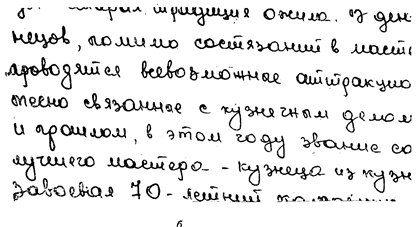 старая традиция ожила. В ден
нецов, помимо состязаний в масте
проводятся всевозможные аттракцио
тесно связанные с кузнечным делом
и прошлом, в этом году звание са
лучшего мастера - кузнеца из кузн
завоевал 70-летний
6